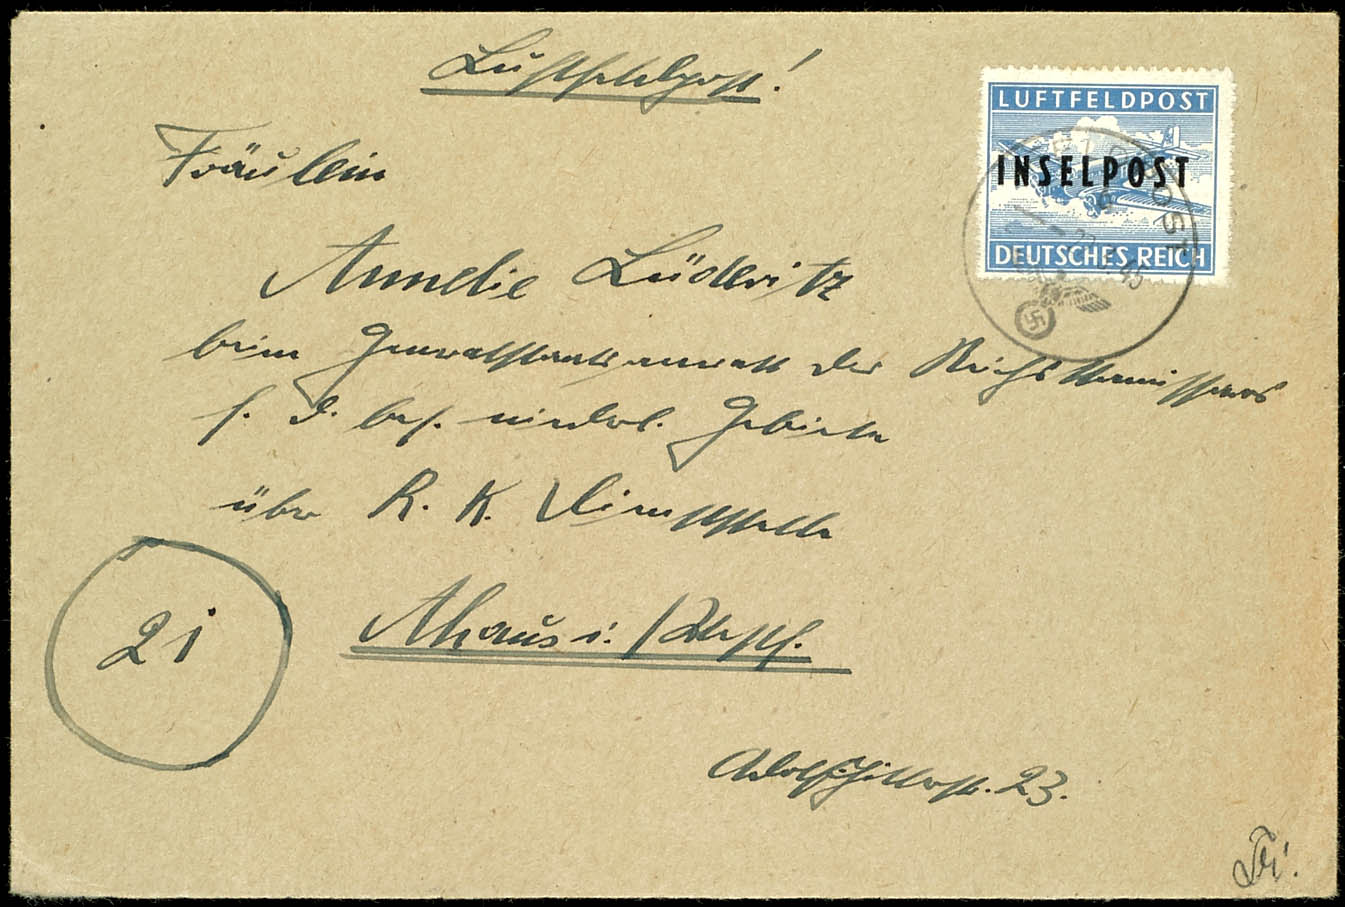 Luftfeldpost!
LUFTFELDPOST
INSELPOST
DEUTSCHES REICH
Fräulein
Annelie Lüderitz
beim Generalstaatsanwalt des Reichskommissars
f. d. bes. niederl. Gebiete
über R. K. Dienststelle
Ahaus i. Westf.
21
Adolf-Hitlerstr. 23.